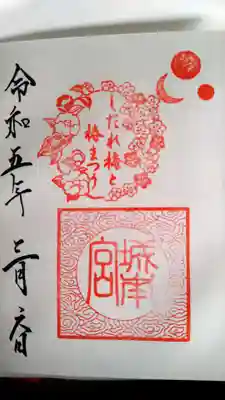 しだれ梅と
椿まつり
城南
宮
令和五年三月六日